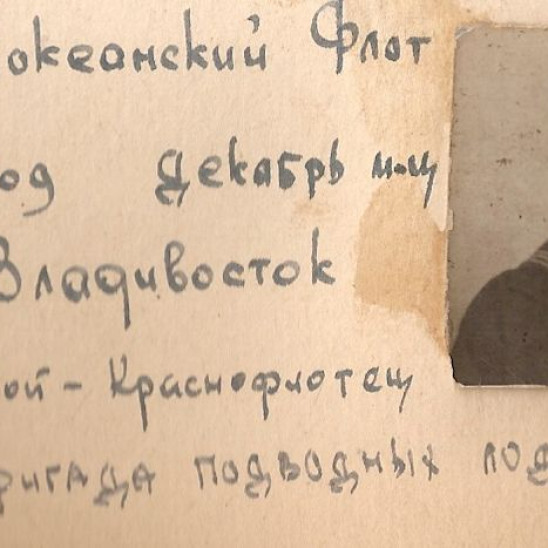 океанский Флот
од декабрь м-ц
Владивосток
ой - Краснофлотец
бригада подводных лод